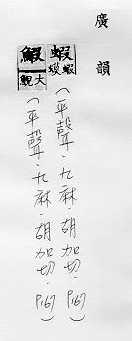 廣韻
蝦蝦蟆(平聲·九麻·胡加切·P167)
鰕大鯢(平聲·九麻·胡加切·P167)